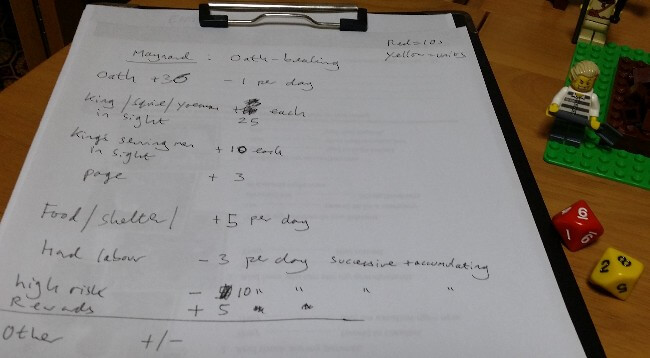 Red = 10s
Yellow = units
Maynard : Oath-breaking
Oath +36 - 1 per day
King / squire / yeoman each
in sight 25
King's serving men + 10 each
in sight
page + 3
Food / shelter / +5 per day
Hard labour - 3 per day successive + accumulating
high risk - 10 " " " "
Rewards + 5 " "
Other +/-
6
2